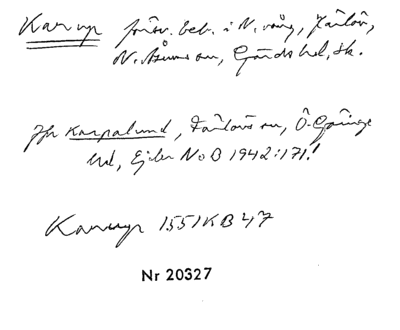 Karup försv. beb. i N. vång, Färlöv,
N. Åsums sn, Gärds hd, Sk.
Jfr Karpalund, Färlövs sn, Ö. Göinge
hd, Ejder NoB 1942:171!
Karup 1551 KB 47
Nr 20327